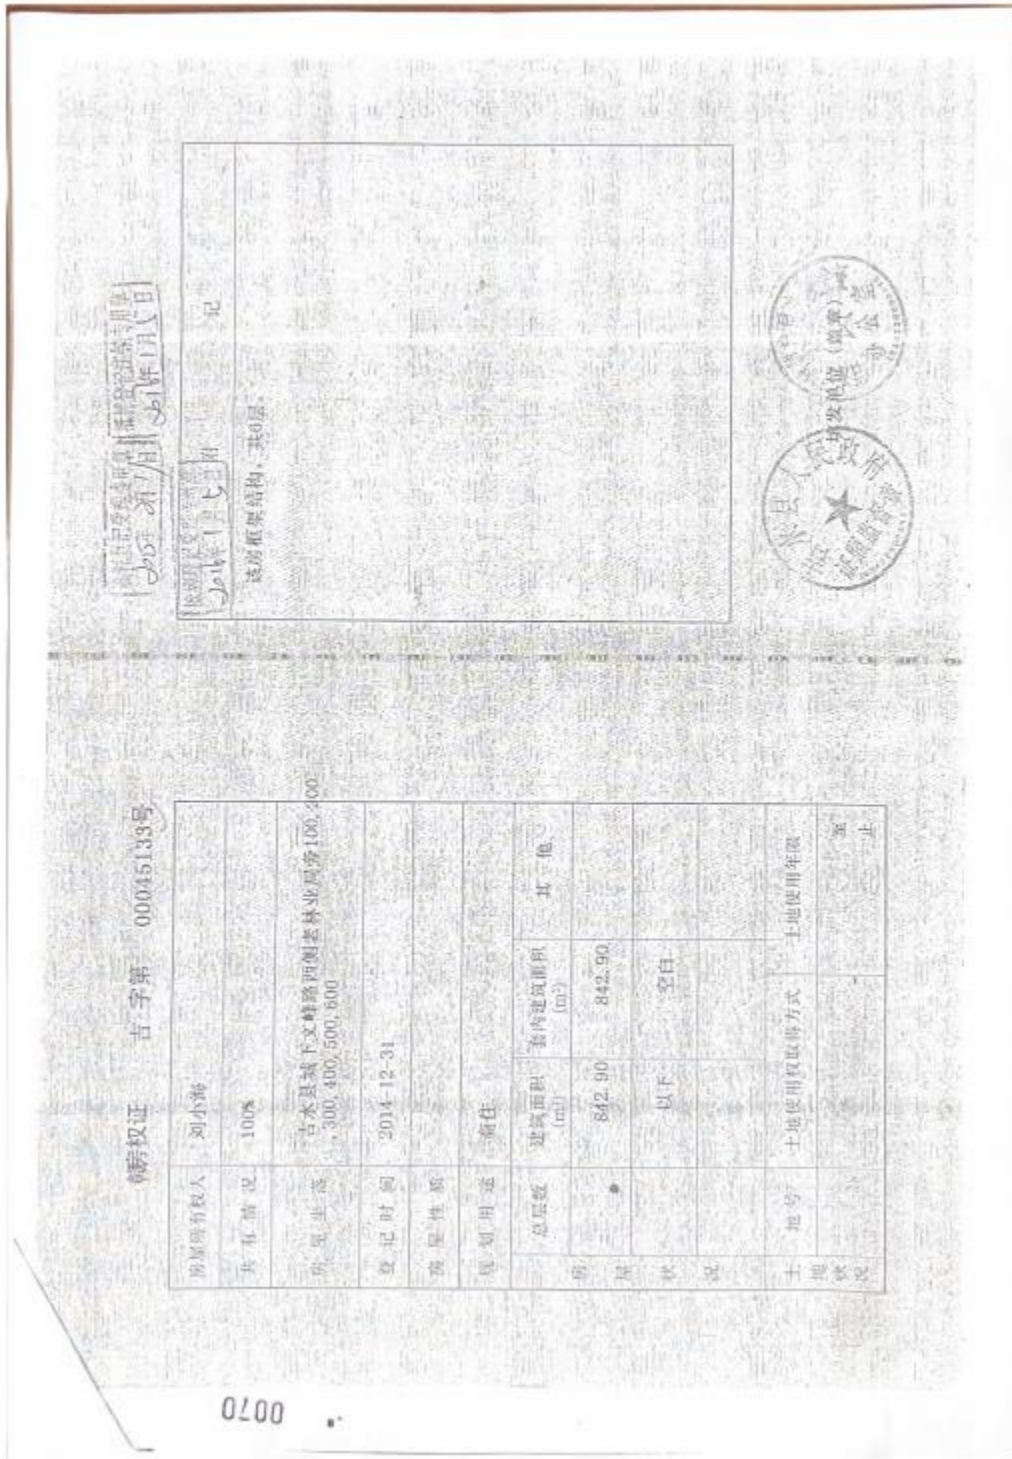 房权证 吉 字第 00045133号
房屋所有权人 刘小海
共有情况 100%
房屋坐落 吉水县城下文峰路西侧老林业局旁100,200
,300,400,500,600
登记时间 2014-12-31
房屋性质
规划用途 商住
房屋状况 总层数 建筑面积(m²) 套内建筑面积(m²) 其他
842.90 842.90
以下 空白
土地状况 地号 土地使用权取得方式 土地使用年限
至
止
附 记
2016年1月七日
2016年1月八日
该房框架结构，共6层。
填发单位（盖章）
吉水县人民政府
证照监督
办公室
0070